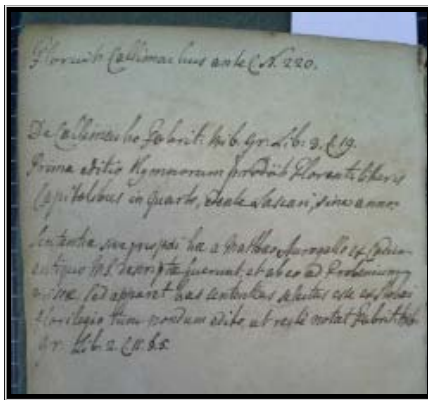 Floruit Callimachus ante C.N. 220.
De Callimacho Fabrit. bib. Gr. Lib. 3. C. 19.
Prima editio Hymnorum prodiit Florentiae literis
Capitalibus in Quarto, edente Lascari, sine anno.
Sententiae sive gnomae hae a Matthaeo Aurogallo ex codice
antiquo MS. descriptae fuerunt, et ab eo ad Frobenium
missae. Sed apparet has sententias selectas esse ex Stobaei
Florilegio tum nondum edito, ut recte notat Fabrit. bib.
Gr. Lib. 2. C. 11. §. 5.